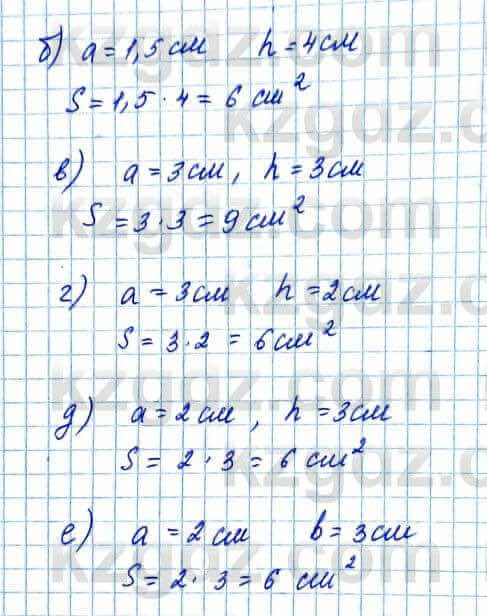 б) a = 1,5 см h = 4 см
S = 1,5 · 4 = 6 см²
в) a = 3 см, h = 3 см
S = 3 · 3 = 9 см²
г) a = 3 см h = 2 см
S = 3 · 2 = 6 см²
д) a = 2 см, h = 3 см
S = 2 · 3 = 6 см²
е) a = 2 см b = 3 см
S = 2 · 3 = 6 см²
kzgdz.com